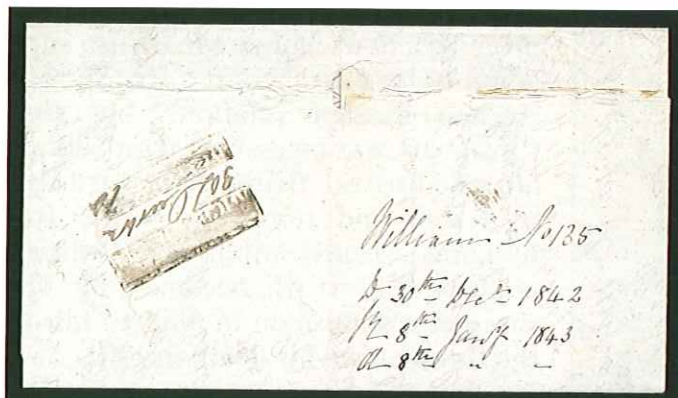 William No 135
D 30th Decr 1842
R 8th Jany 1843
A 8th " "